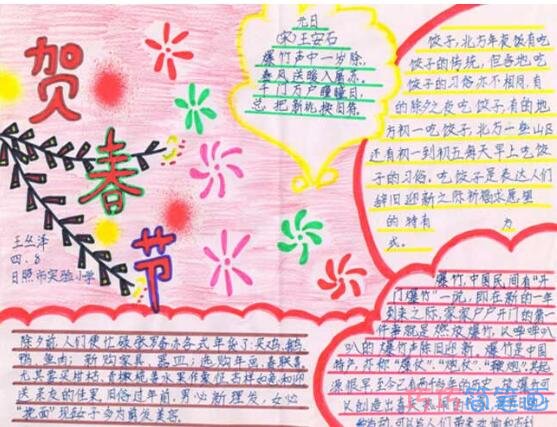 贺
春
节
王丛洋
四.8
日照市实验小学
元日
(宋)王安石
爆竹声中一岁除,
春风送暖入屠苏,
千门万户曈曈日,
总把新桃换旧符。
饺子,北方年夜饭有吃
饺子的传统,但各地吃
饺子的习俗亦不相同,有
的除夕之夜吃饺子,有的地
方初一吃饺子,北方一些山区
还有初一到初五每天早上吃饺
子的习俗。吃饺子是表达人们
辞旧迎新之际祈福求愿
的特有 方
式。
爆竹,中国民间有“开
门爆竹”一说,即在新的一年
到来之际,家家户户开门的第一
件事就是燃放爆竹,以哔哔叭
叭的爆竹声除旧迎新。爆竹是中国
特产,亦称“爆仗”、“炮仗”、“鞭炮”。其起
源很早,至今已有两千多年的历史。放爆竹可
以创造出喜庆热闹的
可以给人们带来欢愉和吉利
除夕前,人们便忙碌张罗备办各式年货了:买鸡、鹅、
鸭、鱼、肉;新购家具、器皿;选购年画、春联
迎
送亲友的佳果。旧俗过年前,男必新理发,女必